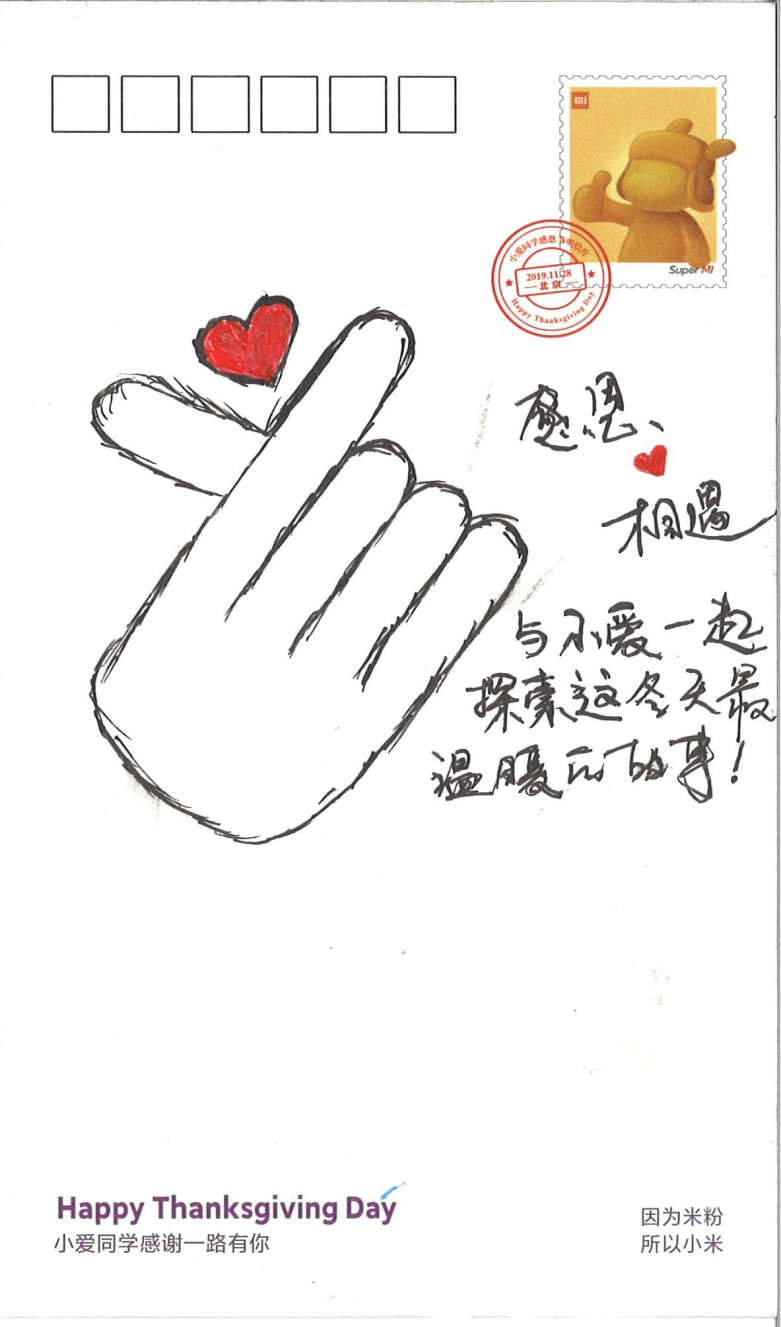 MI
Super MI
小爱同学感恩节明信片
2019.11.28
北京
Happy Thanksgiving Day
感恩、
相遇
与小爱一起
探索这冬天最
温暖的事!
Happy Thanksgiving Day
小爱同学感谢一路有你
因为米粉
所以小米